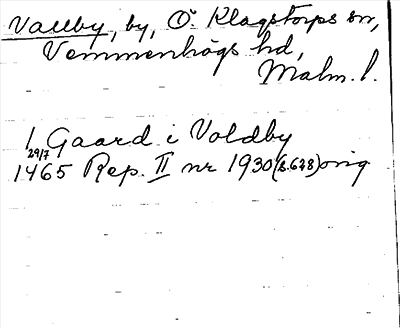 Vallby, by, Ö. Klagstorps sn,
Vemmenhögs hd,
Malm. l.
1 Gaard i Voldby
29/7
1465 Rep. II nr 1930 (s. 678) orig